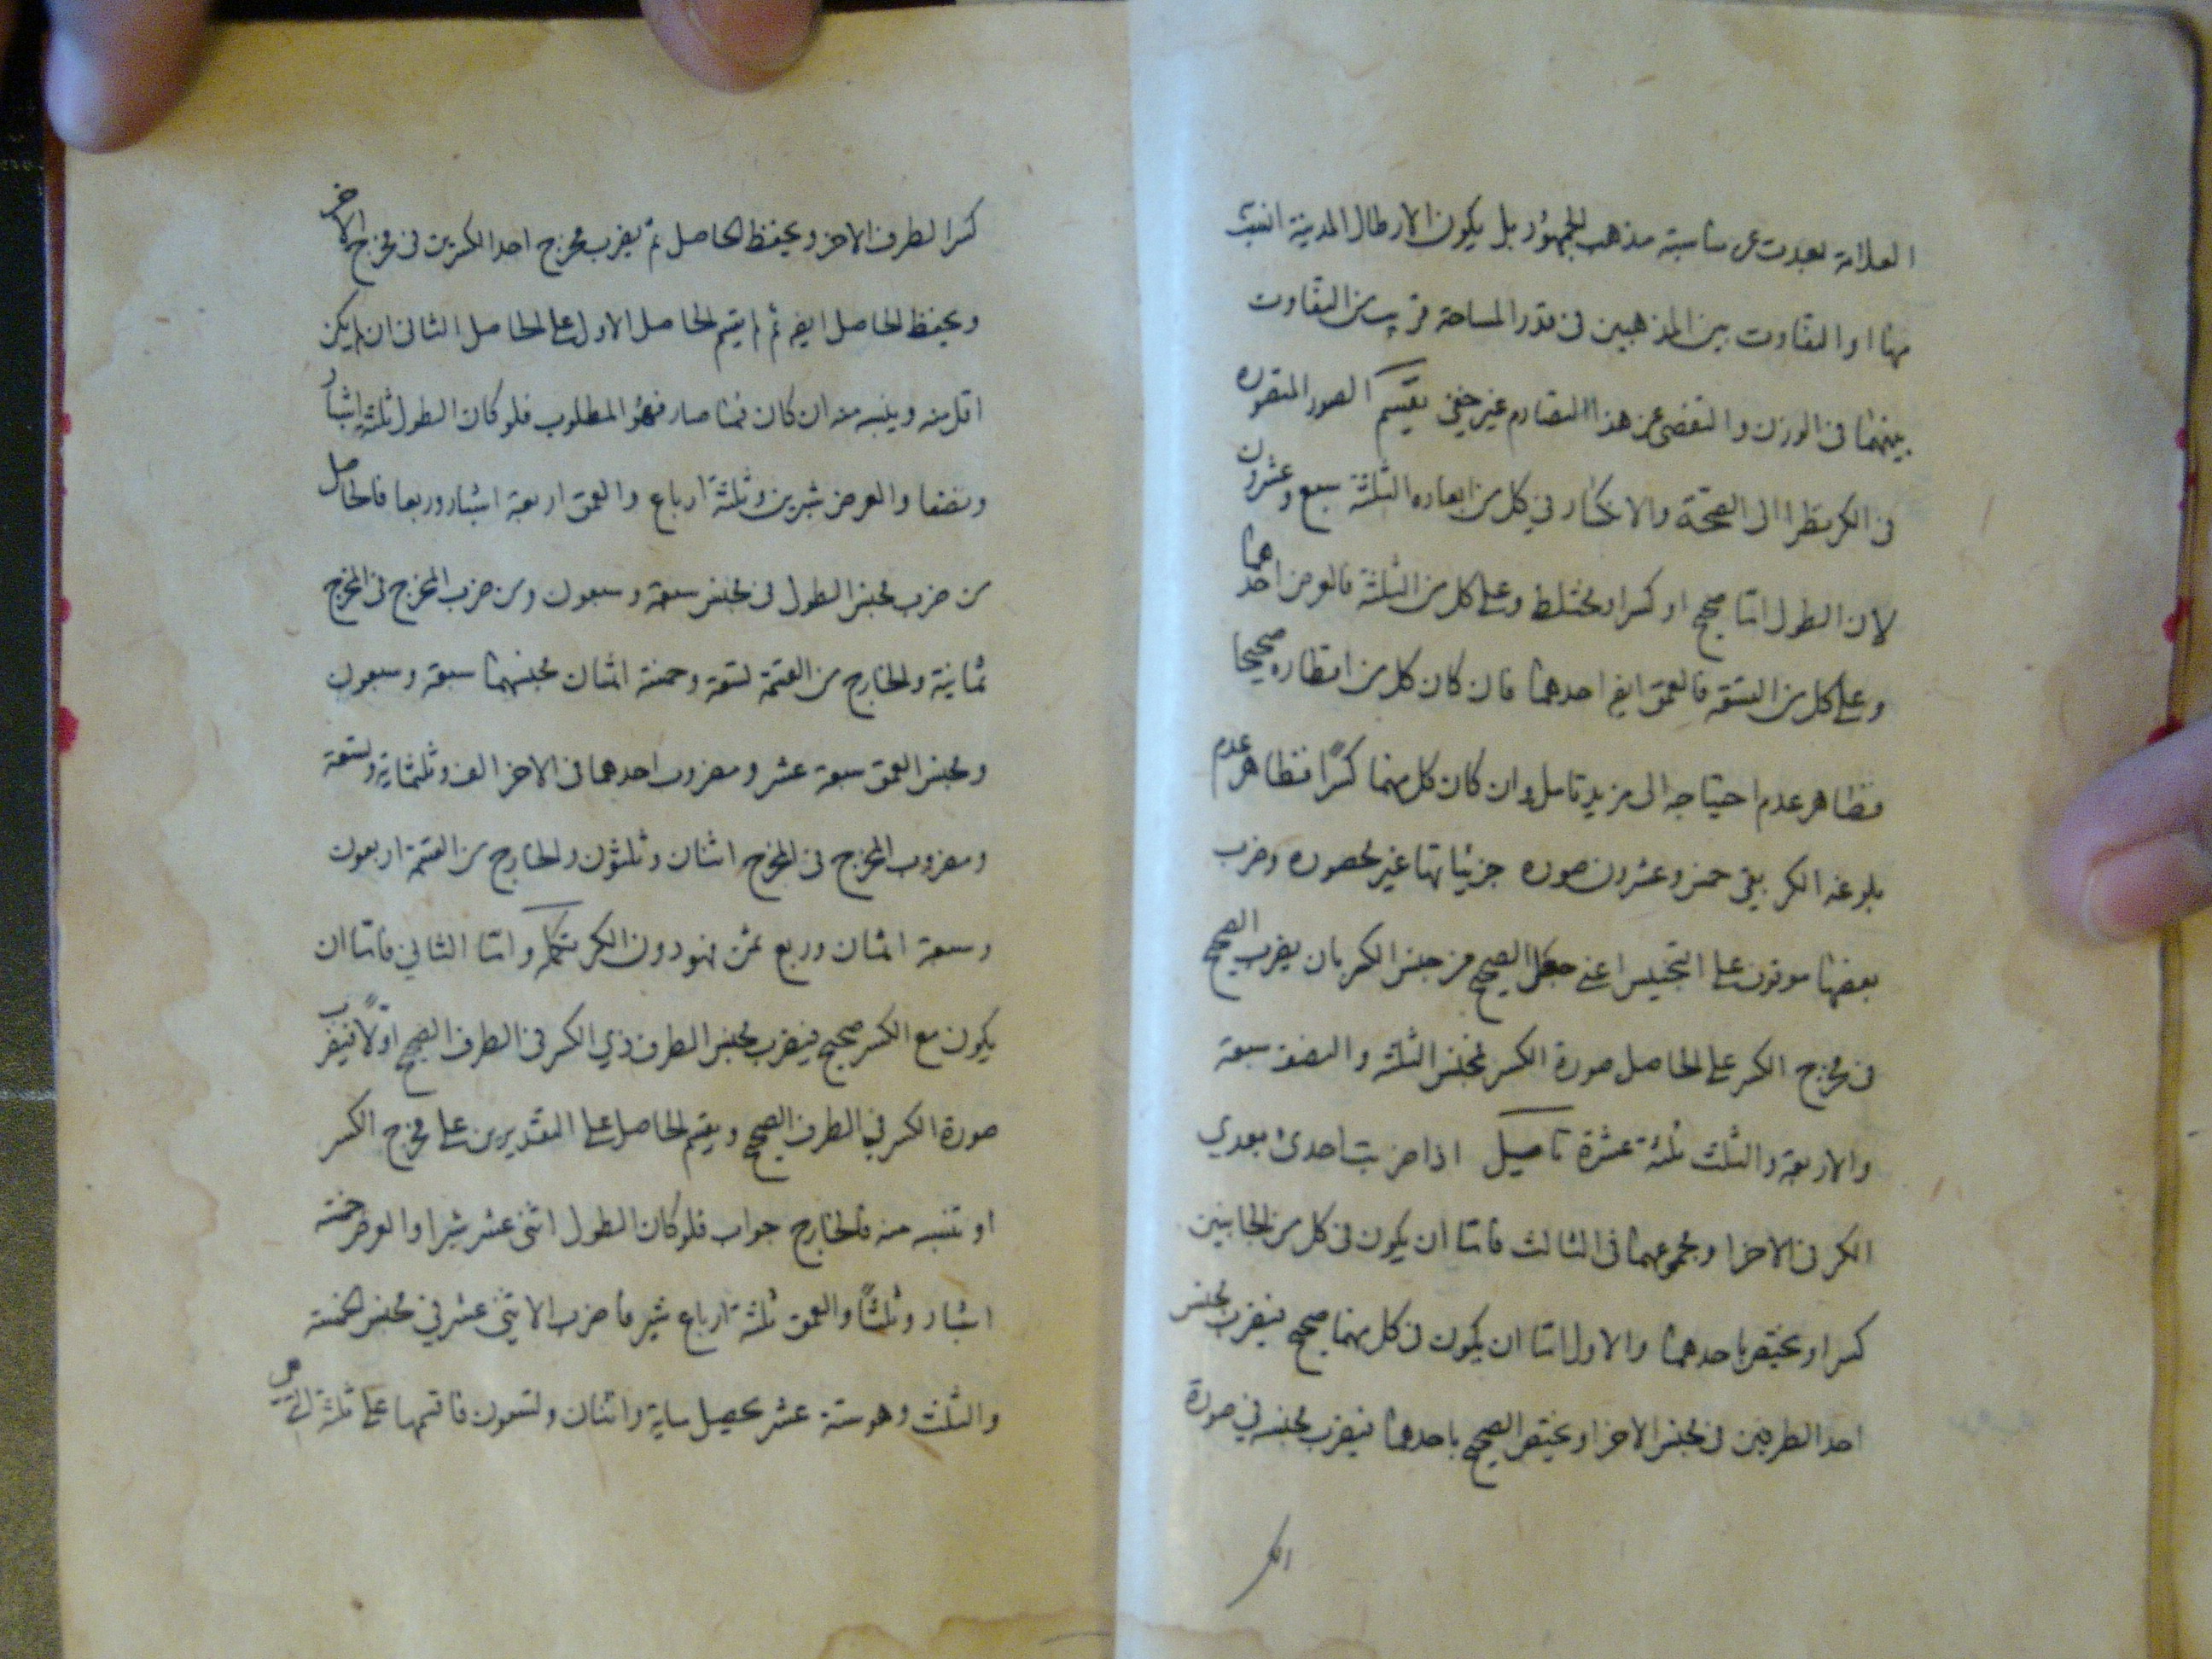 العلامة بعدت عن مناسبة مذهب الجمهور بل يكون الارطال المدينة انسب
بها او التفاوت بين المذهبين فى قدر المساحة قريب من التفاوت
بينهما فى الوزن و التفصى عن هذا التصادم غير خفى تقسيم الصور المتصوره
فى الكر نظرا الى الصحة والانكسار في كل من ابعاده الثلثة سبع وعشرون
لان الطول اما صحيح او كسر او مختلط وعلى كل من الثلثة فالعرض احدها
وعلى كل من التسعة فالعمق ايض احدهما فان كان كل من اقطاره صحيحا
فظاهر عدم احتياجه الى مزيد تامل وان كان كل منها كسرًا فظاهر عدم
بلوغه الكر بقى خمس وعشرون صوره جزئياتها غير محصوره وضرب
بعضها موقوف على التجنيس اعنى جعل الصحيح من جنس الكسر بان يضرب الصحيح
فى مخرج الكسر على الحاصل صورة الكسر فمجنس الثلثة والنصف سبعة
والاربعة والثلث ثلثة عشرة تاصيل اذا ضربت احدى بعدي
الكر فى الاخر او مجموعهما فى الثالث فاما ان يكون فى كل من الجانبين
كسر او يختص باحدهما والاول اما ان يكون فى كل منهما صحيح فيضرب مجنس
احد الطرفين فى مجنس الاخر او يختص الصحيح باحدهما فيضرب مجنسه في صورة
كسر الطرف الاخر ويحفظ الحاصل ثم يضرب مخرج احد الكسرين فى مخرج الاخر
ويحفظ الحاصل ايض ثم يقسم الحاصل الاول على الحاصل الثانى ان لم يكن
اقل منه وينسبه منه ان كان فما صار فهو المطلوب فلو كان الطول ثلثة اشبار
ونصفا والعرض شبرين وثلثة ارباع والعمق اربعة اشبار وربعا فالحاصل
من ضرب مجنس الطول فى مجنس سبعة وسبعون ومن ضرب المخرج فى المخرج
ثمانية والخارج من القسمة تسعة وخمسة اثمان مجنسهما سبعة وسبعون
ومجنس العمق سبعة عشر ومضروب احدهما فى الاخر الف وثلثمائة وتسعة
ومضروب المخرج فى المخرج اثنان وثلثون والخارج من القسمة اربعون
وسبعة اثمان وربع ثمن فهو دون الكر واما الثاني فاما ان
يكون مع الكسر صحيح فيضرب مجنس الطرف ذي الكسر فى الطرف الصحيح اولًا فيضرب
صورة الكسر في الطرف الصحيح ويقسم الحاصل على التقديرين على مخرج الكسر
او تنسبه منه فالخارج جواب فلو كان الطول اثنى عشر شبرا والعرض خمسة
اشبار وثلثًا والعمق ثلثة ارباع شبر فاضرب الاثنى عشر في مجنس الخمسة
والثلث وهو ستة عشر يحصل ماية واثنان وتسعون فاقسمها على ثلثة